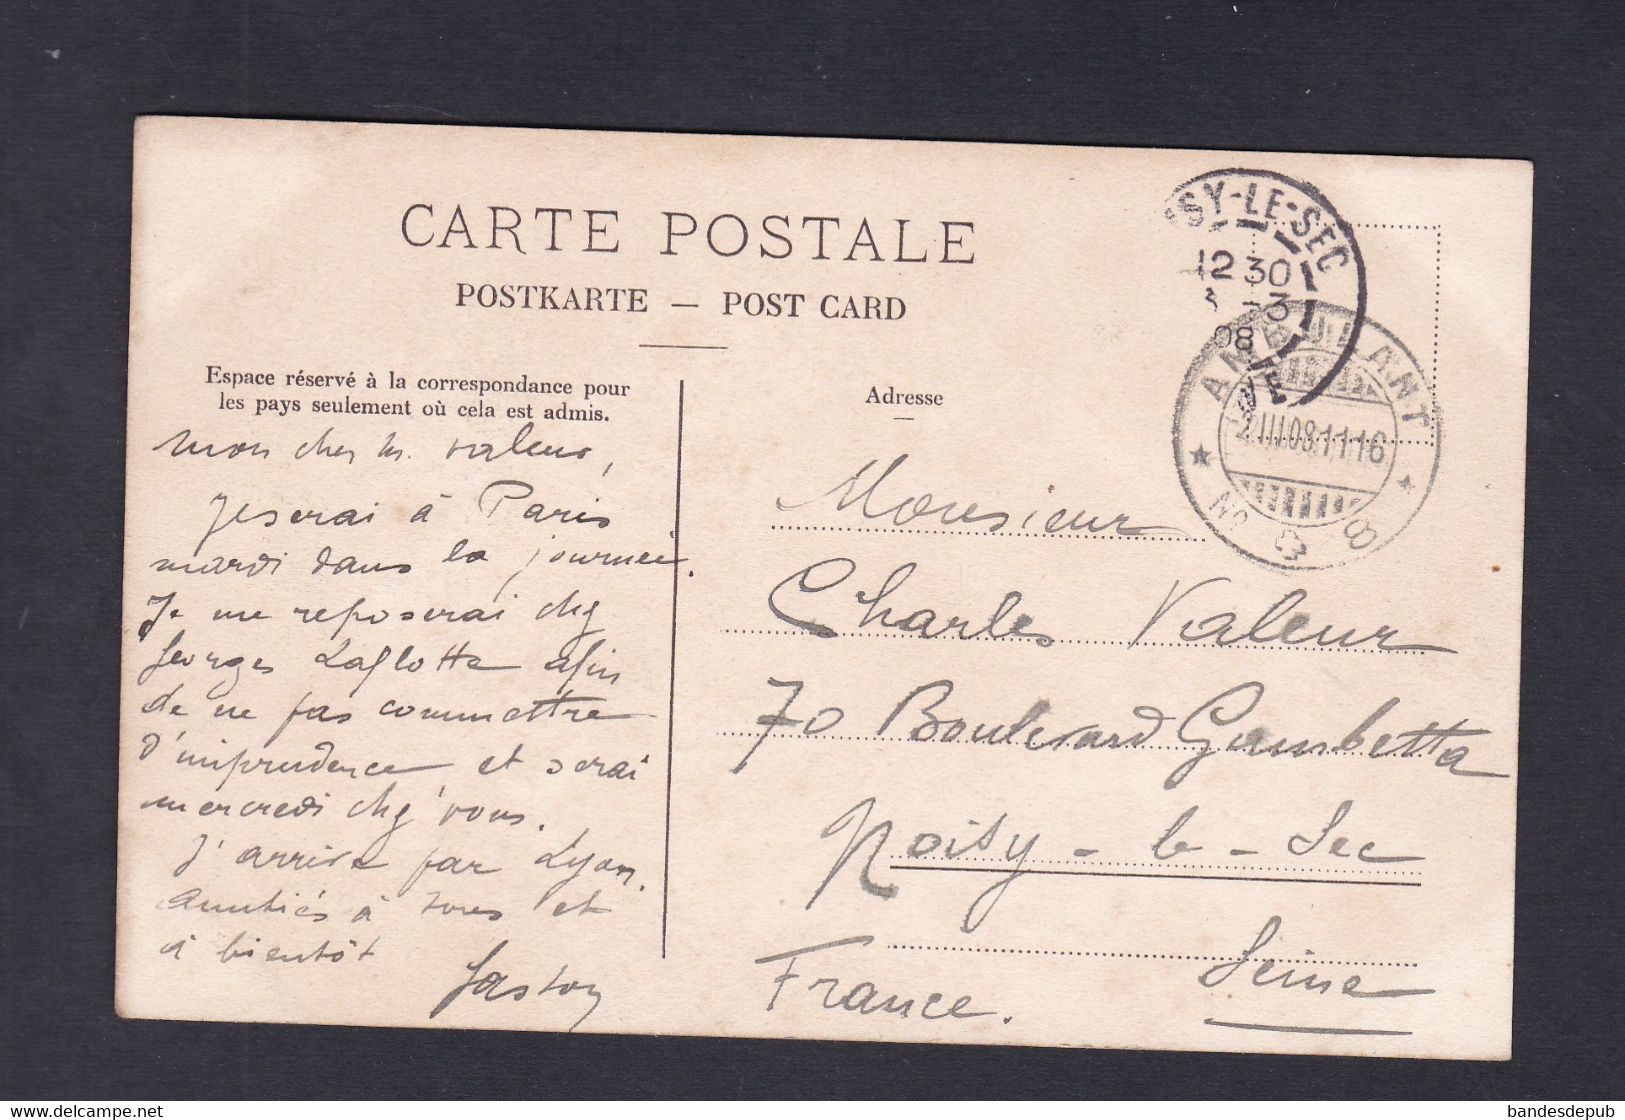 CARTE POSTALE
POSTKARTE — POST CARD
Espace réservé à la correspondance pour
les pays seulement où cela est admis.
Adresse
Mon cher M. Valeur,
Je serai à Paris
mardi dans la journée.
Je me reposerai chez
Georges Laflotte afin
de ne pas commettre
d'imprudence et serai
mercredi chez vous.
J'arrive par Lyon.
Amitiés à tous et
à bientôt
Gaston
Monsieur
Charles Valeur
70 Boulevard Gambetta
Noisy-le-Sec
Seine
France.
SY-LE-SEC
12 30
3 -3
08
AMBULANT
2.III.08.11 16
No 8
www.delcampe.net
bandesdepub